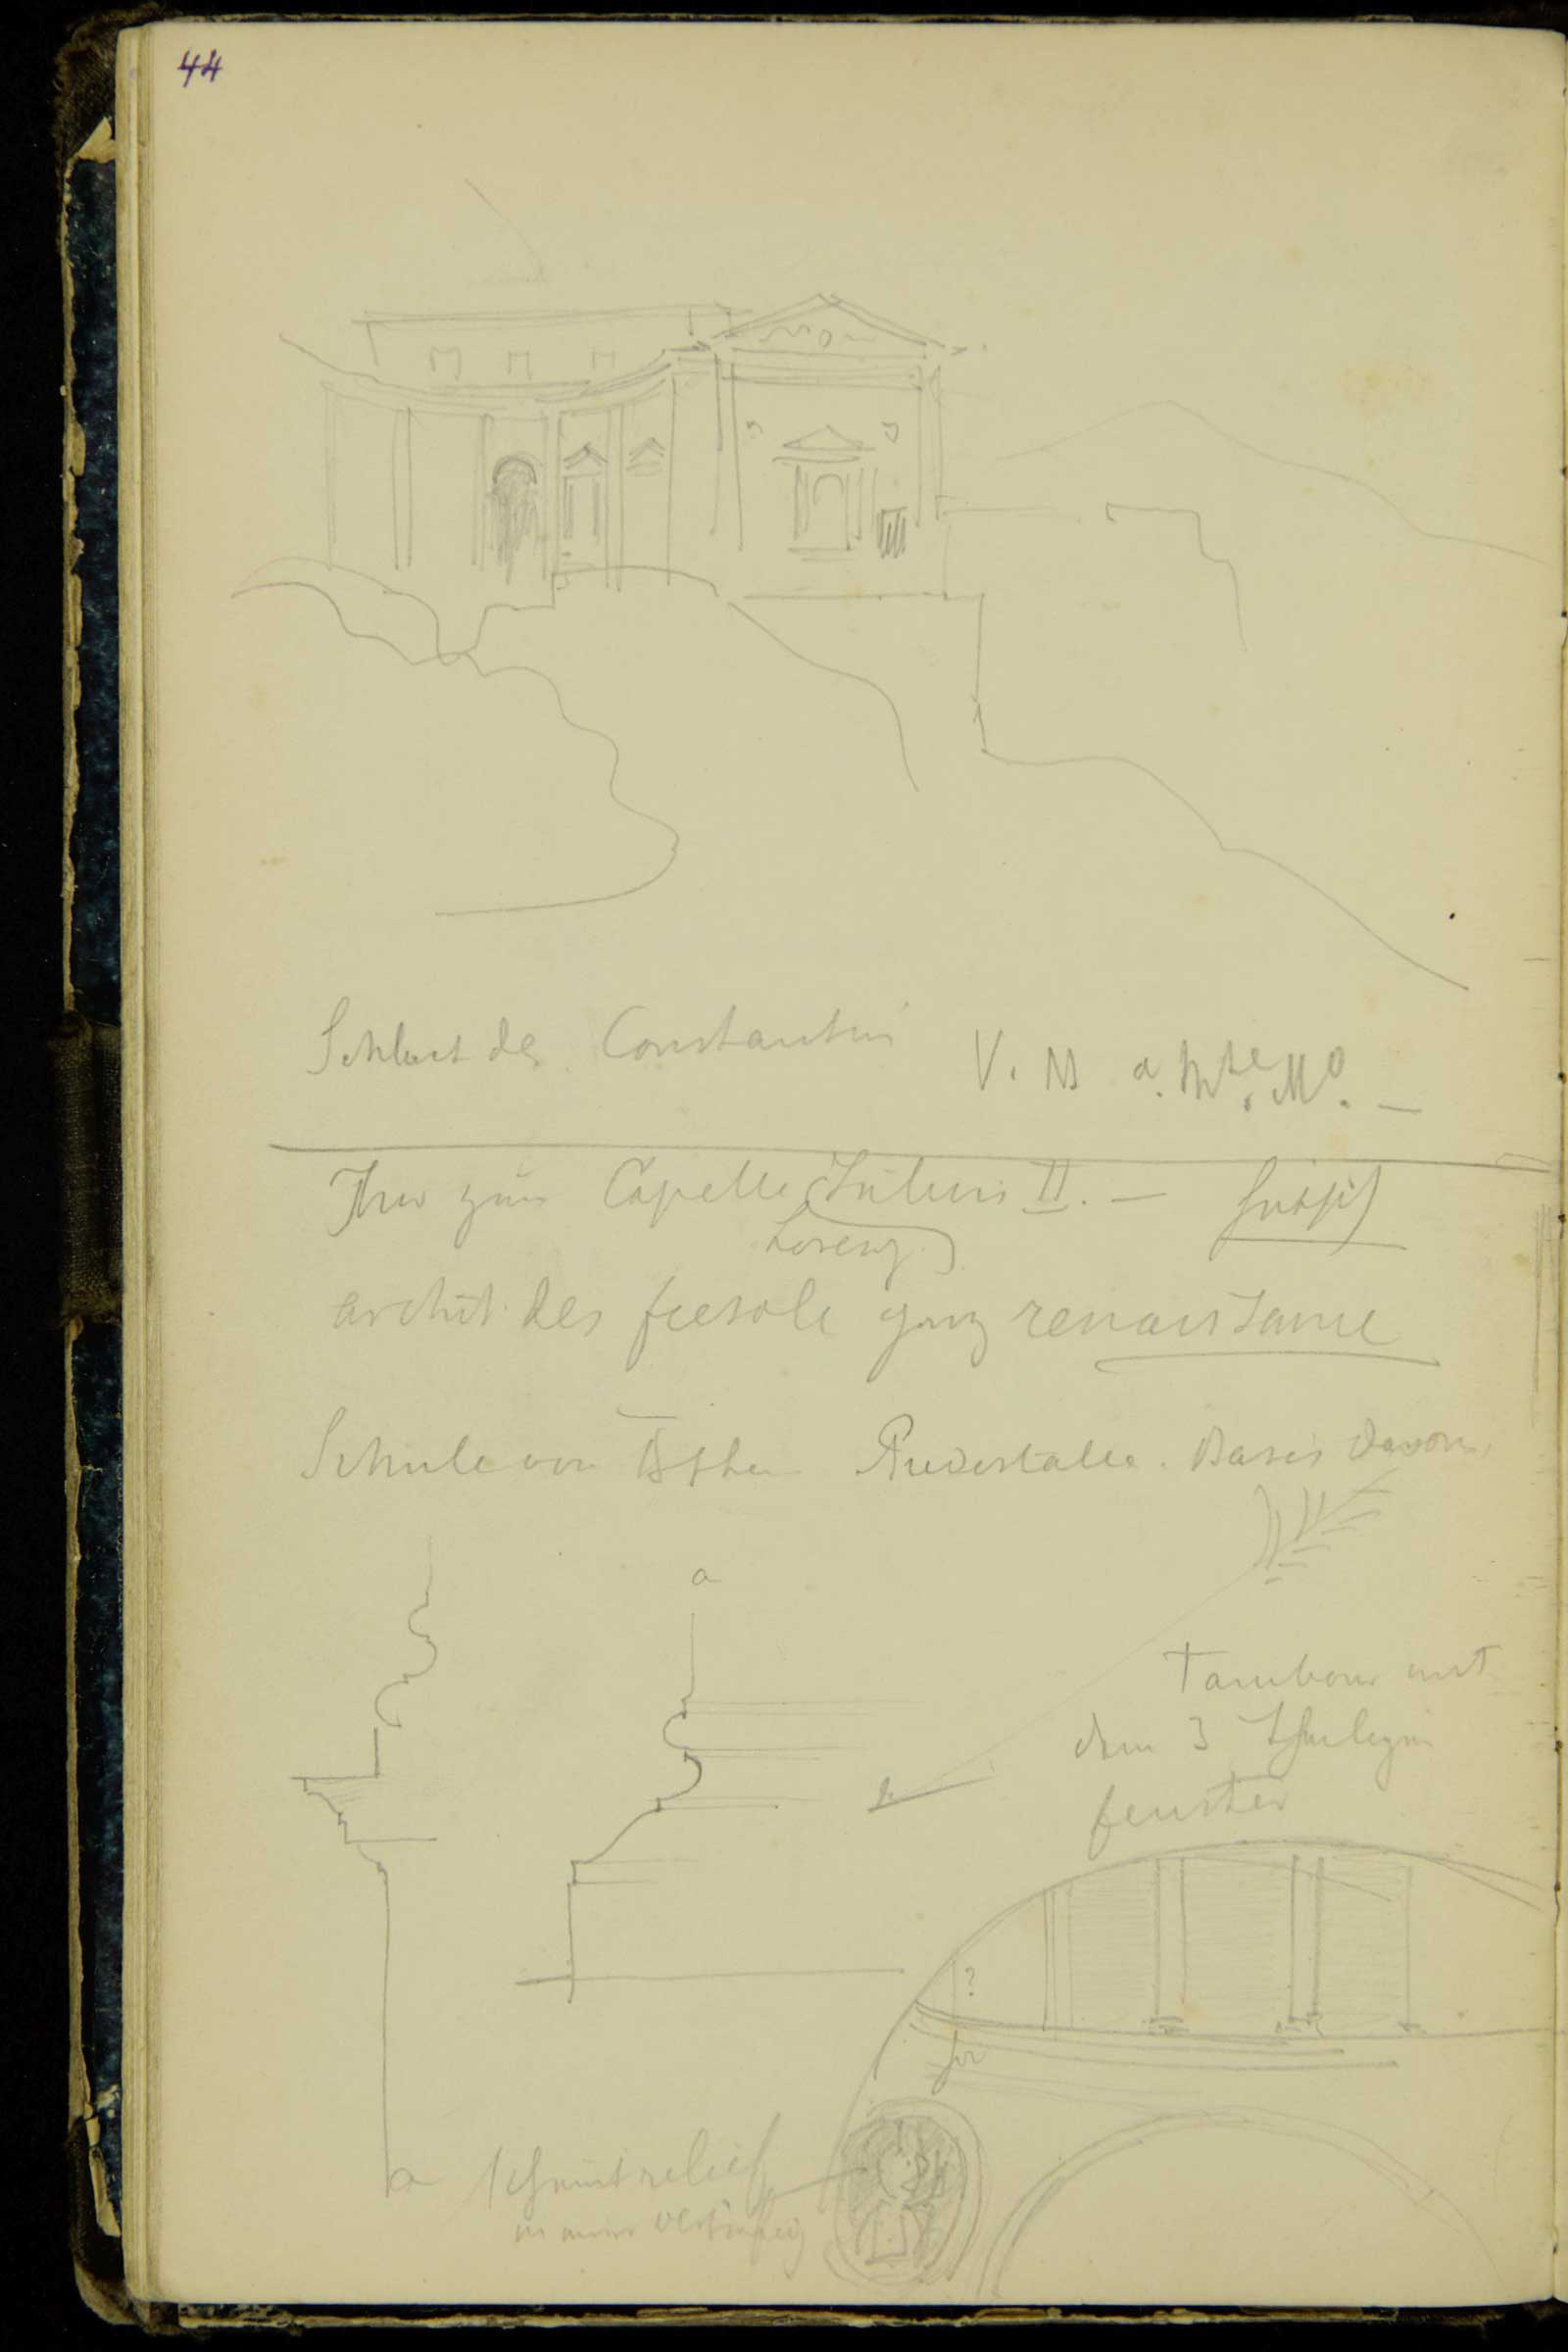 44
Schlact des Constantin V. M a. Mte. Mo. —
Thür zür Capelle Julius II. —
Lorenz
archit. des fiesole ganz renaissance
Schule von Athen Piedestalle. Basis davon
a
Tambour mit
dem 3
fenster
?
a relief